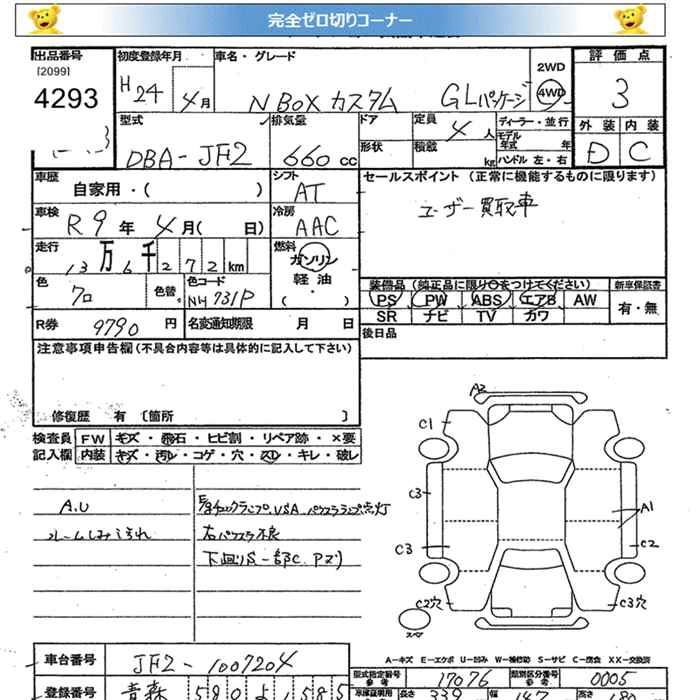 完全ゼロ切りコーナー
出品番号 初度登録年月 車名・グレード 2WD 評価点
[2099]
4293 H24 4月 N BOX カスタム GLパッケージ 4WD 3
型式 排気量 ドア 定員 4人 ディーラー・並行 外装 内装
モデル年式 年
DBA-JF2 660cc 形状 積載 kg ハンドル 左・右 D C
車歴 自家用・( ) シフト AT セールスポイント (正常に機能するものに限ります)
車検 R9年4月( 日) 冷房 AAC ユーザー買取車
走行 13万6千272km 燃料 ガソリン
軽油
・( )
色 クロ 色替 色コード NH731P
装備品(純正品に限り○をつけてください) 新車保証書
PS PW ABS エアB AW 有・無
SR ナビ TV カワ
R券 9790円 名変通知期限 月 日
後日品
注意事項申告欄(不具合内容等は具体的に記入して下さい)
修復歴 有 [箇所 ]
検査員 FW キズ・飛石・ヒビ割・リペア跡・×要
記入欄 内装 キズ・汚レ・コゲ・穴・スレ・キレ・破レ
A.U
ルームしみ汚れ
チェックランプ.VSA.パワステランプ点灯
右パワステ不良
下廻りS 一部C
A2
C1
C3
A1
C3
C2
C2穴
C3穴
スペア
A-キズ E-エクボ U-凹み W-補修跡 S-サビ C-腐食 XX-交換済
車台番号 JF2-1007204 型式指定番号 参考 17076 類別区分番号 参考 0005
登録番号 青森 580 よ 1585 車庫証明用 長さ 339 幅 147 高さ 180